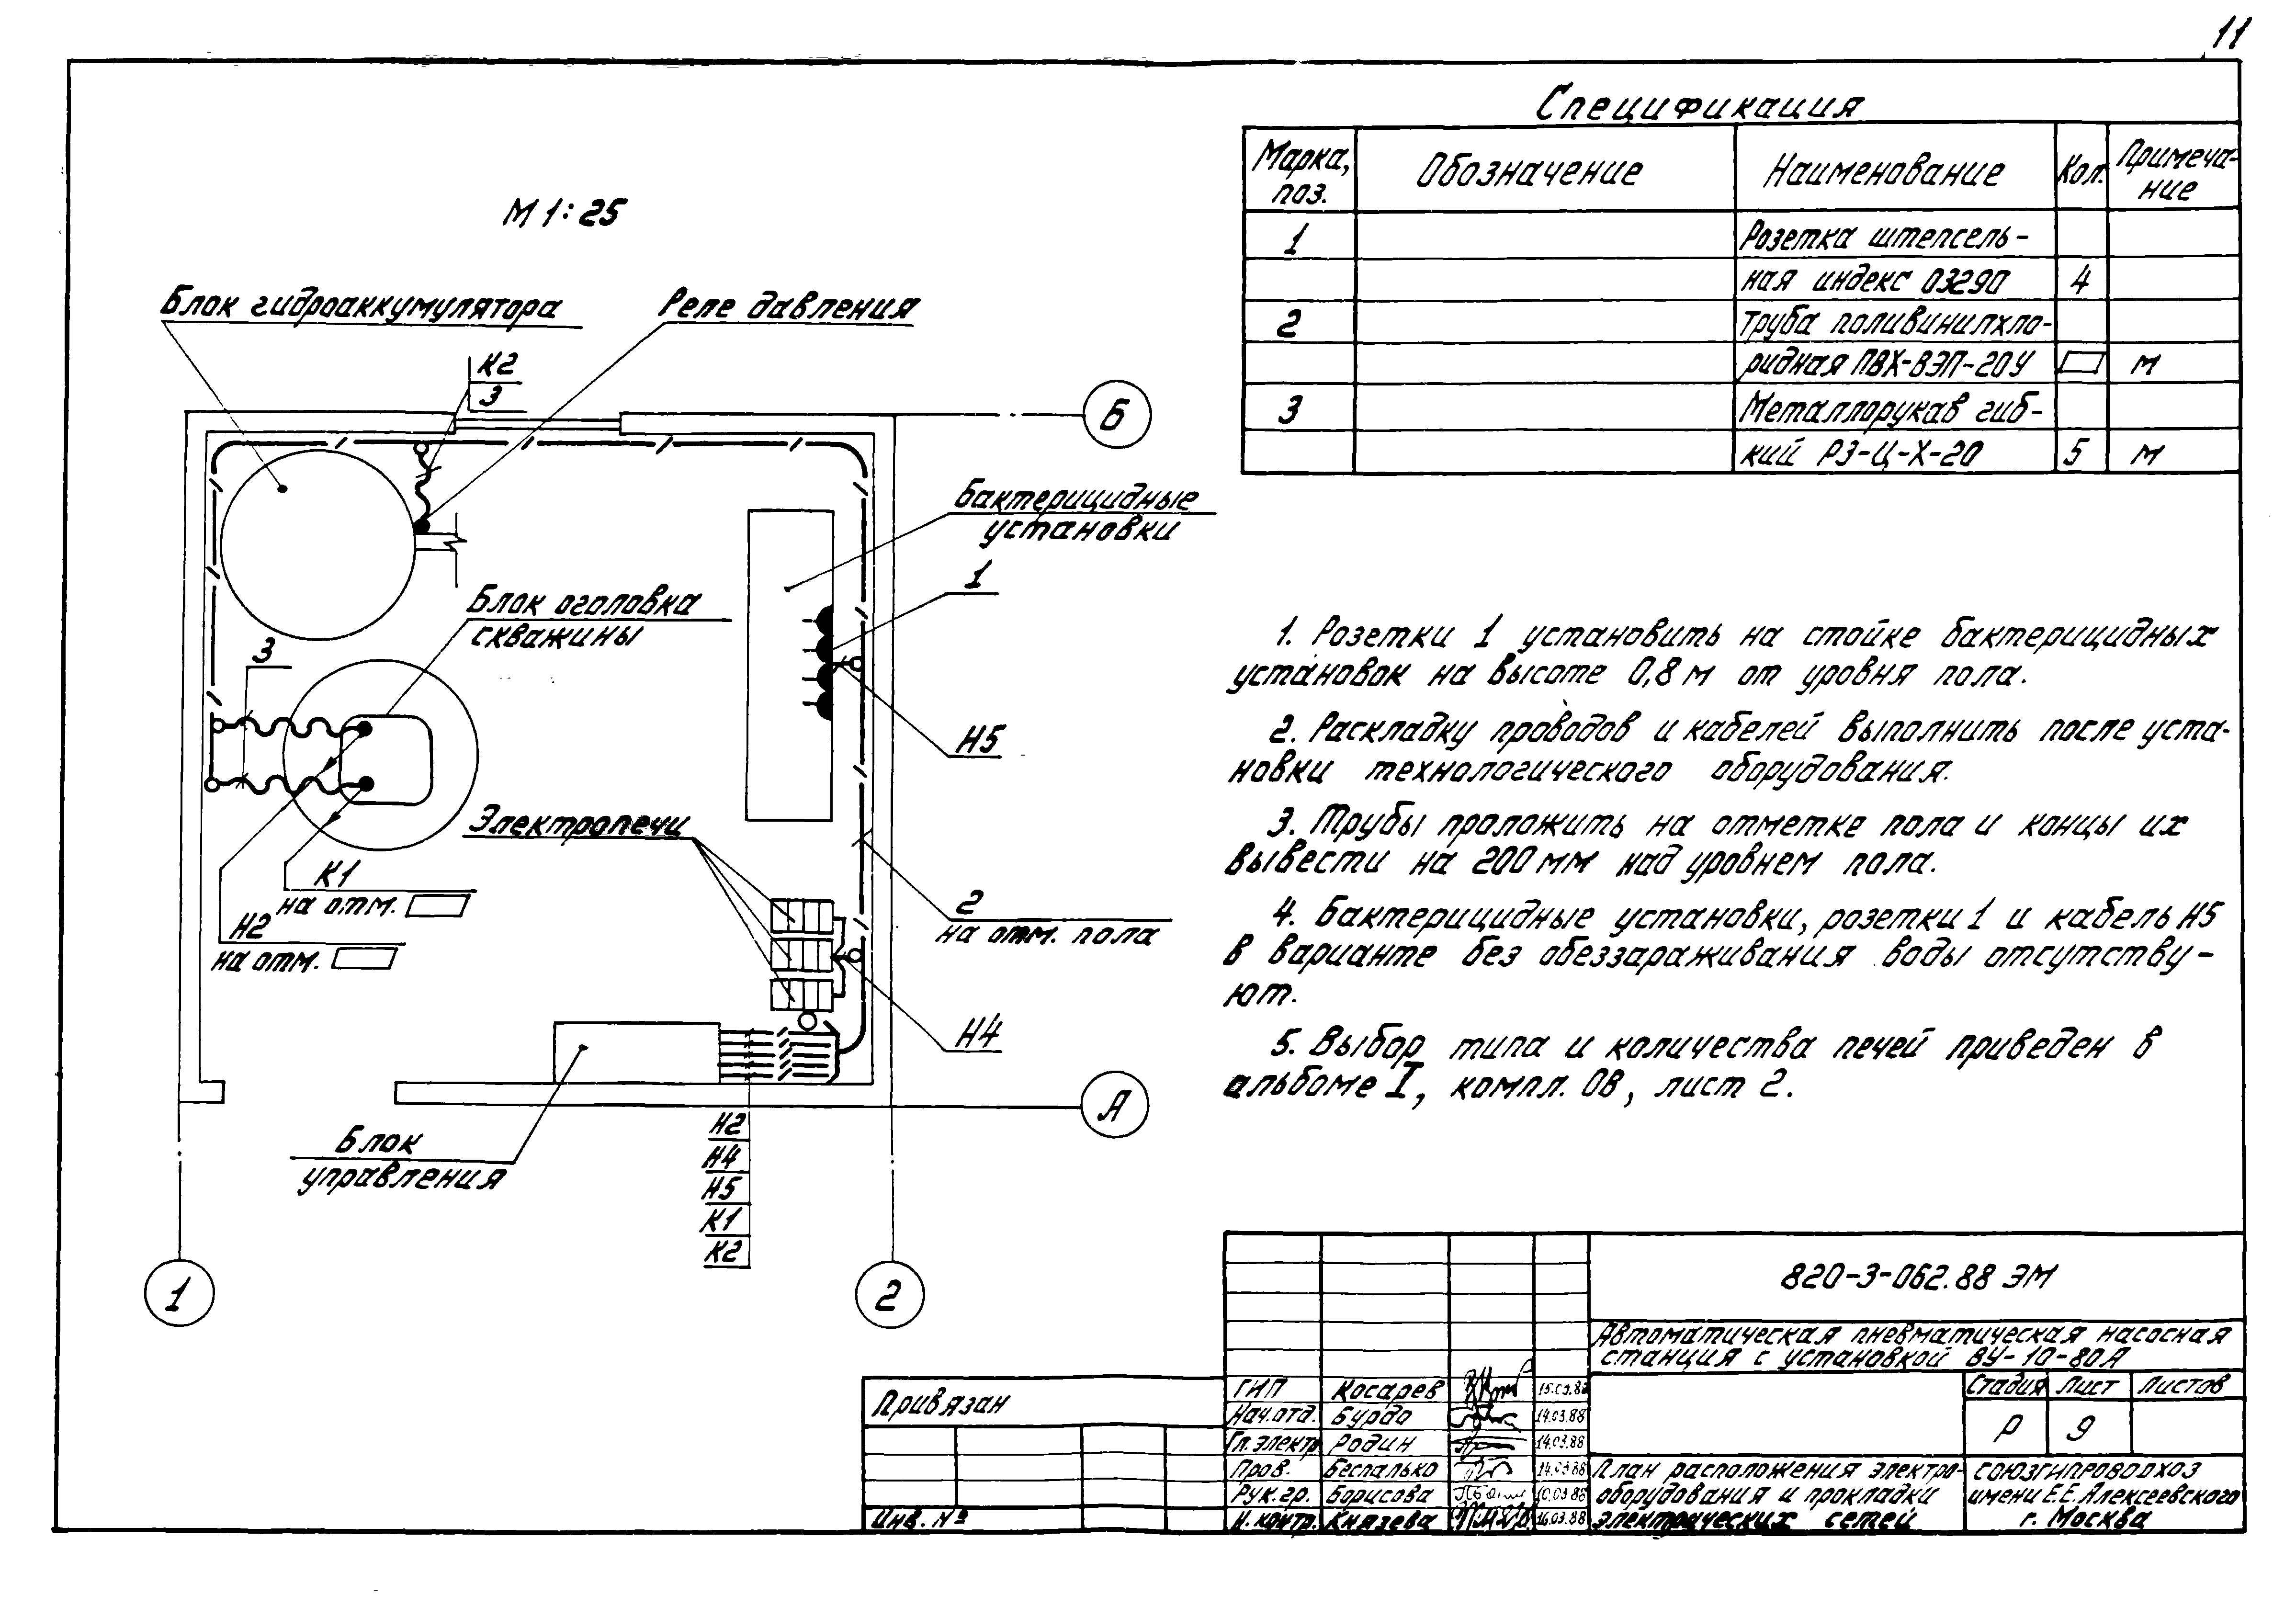 11
Спецификация
Марка, поз.
Обозначение
Наименование
Кол.
Примечание
1
Розетка штепсель-
ная индекс 03290
4
2
Труба поливинилхло-
ридная ПВХ-ВЭП-20У
м
3
Металлорукав гиб-
кий РЗ-Ц-Х-20
5
м
М 1:25
Блок гидроаккумулятора
Реле давления
К2
3
Б
Бактерицидные
установки
1
Блок оголовка
скважины
3
Н5
Электропечи
К1
на отм.
Н2
на отм.
2
на отм. пола
Н4
А
Блок
управления
Н2
Н4
Н5
К1
К2
1
2
1. Розетки 1 установить на стойке бактерицидных
установок на высоте 0,8 м от уровня пола.
2. Раскладку проводов и кабелей выполнить после уста-
новки технологического оборудования.
3. Трубы проложить на отметке пола и концы их
вывести на 200 мм над уровнем пола.
4. Бактерицидные установки, розетки 1 и кабель Н5
в варианте без обеззараживания воды отсутству-
ют.
5. Выбор типа и количества печей приведен в
альбоме I, компл. ОВ, лист 2.
820-3-062.88 ЭМ
Автоматическая пневматическая насосная
станция с установкой ВУ-10-80А
Стадия Лист Листов
Р 9
План расположения электро-
оборудования и прокладки
электрических сетей
СОЮЗГИПРОВОДХОЗ
имени Е.Е. Алексеевского
г. Москва
ГИП Косарев 15.03.88
Нач.отд. Бурдо 14.03.88
Гл.электр. Родин 14.03.88
Пров. Беспалько 14.03.88
Рук.гр. Борисова 10.03.88
Н.контр. Князева 16.03.88
Привязан
Инв. №